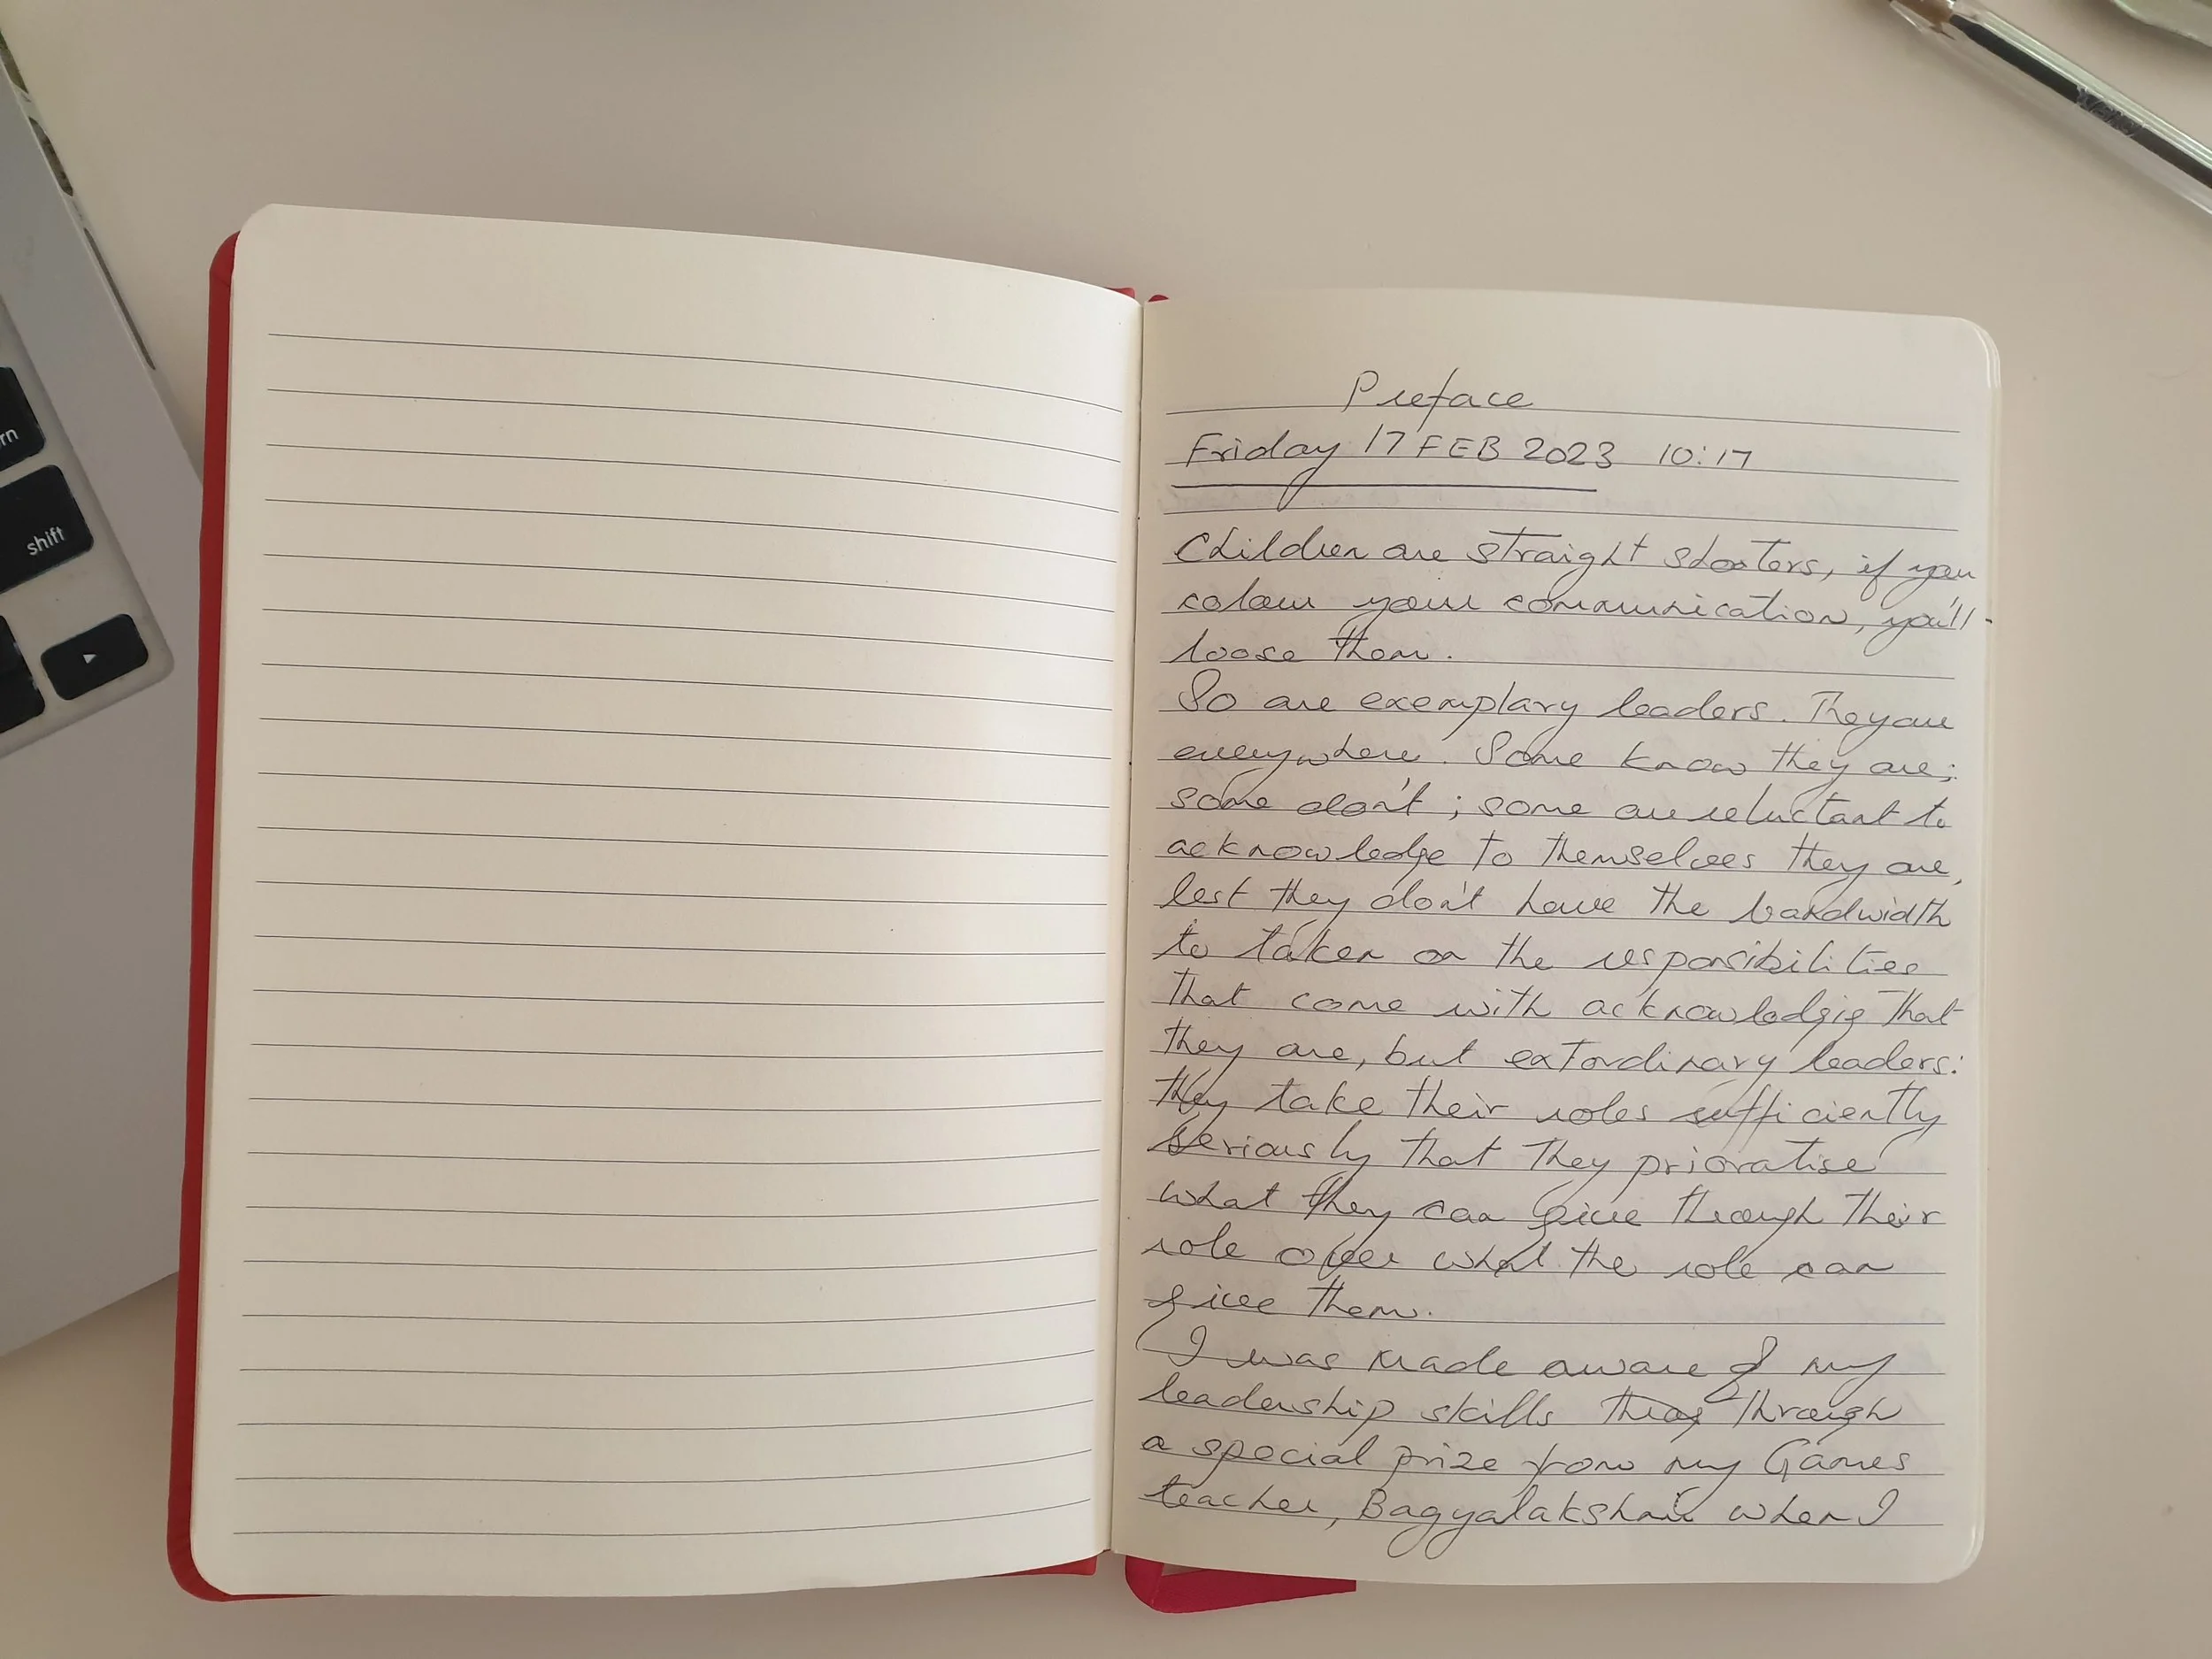 rn
shift
Preface
Friday 17 FEB 2023 10:17
Children are straight shooters, if you
colour your communication, you'll
loose them.
So are exemplary leaders. They are
everywhere. Some know they are;
some don't; some are reluctant to
acknowledge to themselves they are,
lest they don't have the bandwidth
to taken on the responsibilities
that come with acknowledgig that
they are, but extordinary leaders:
they take their roles sufficiently
seriously that they prioratise
what they can give through their
role over what the role can
give them.
I was made aware of my
leadership skills through
a special prize from my Games
teacher, Bagyalakshmi when I